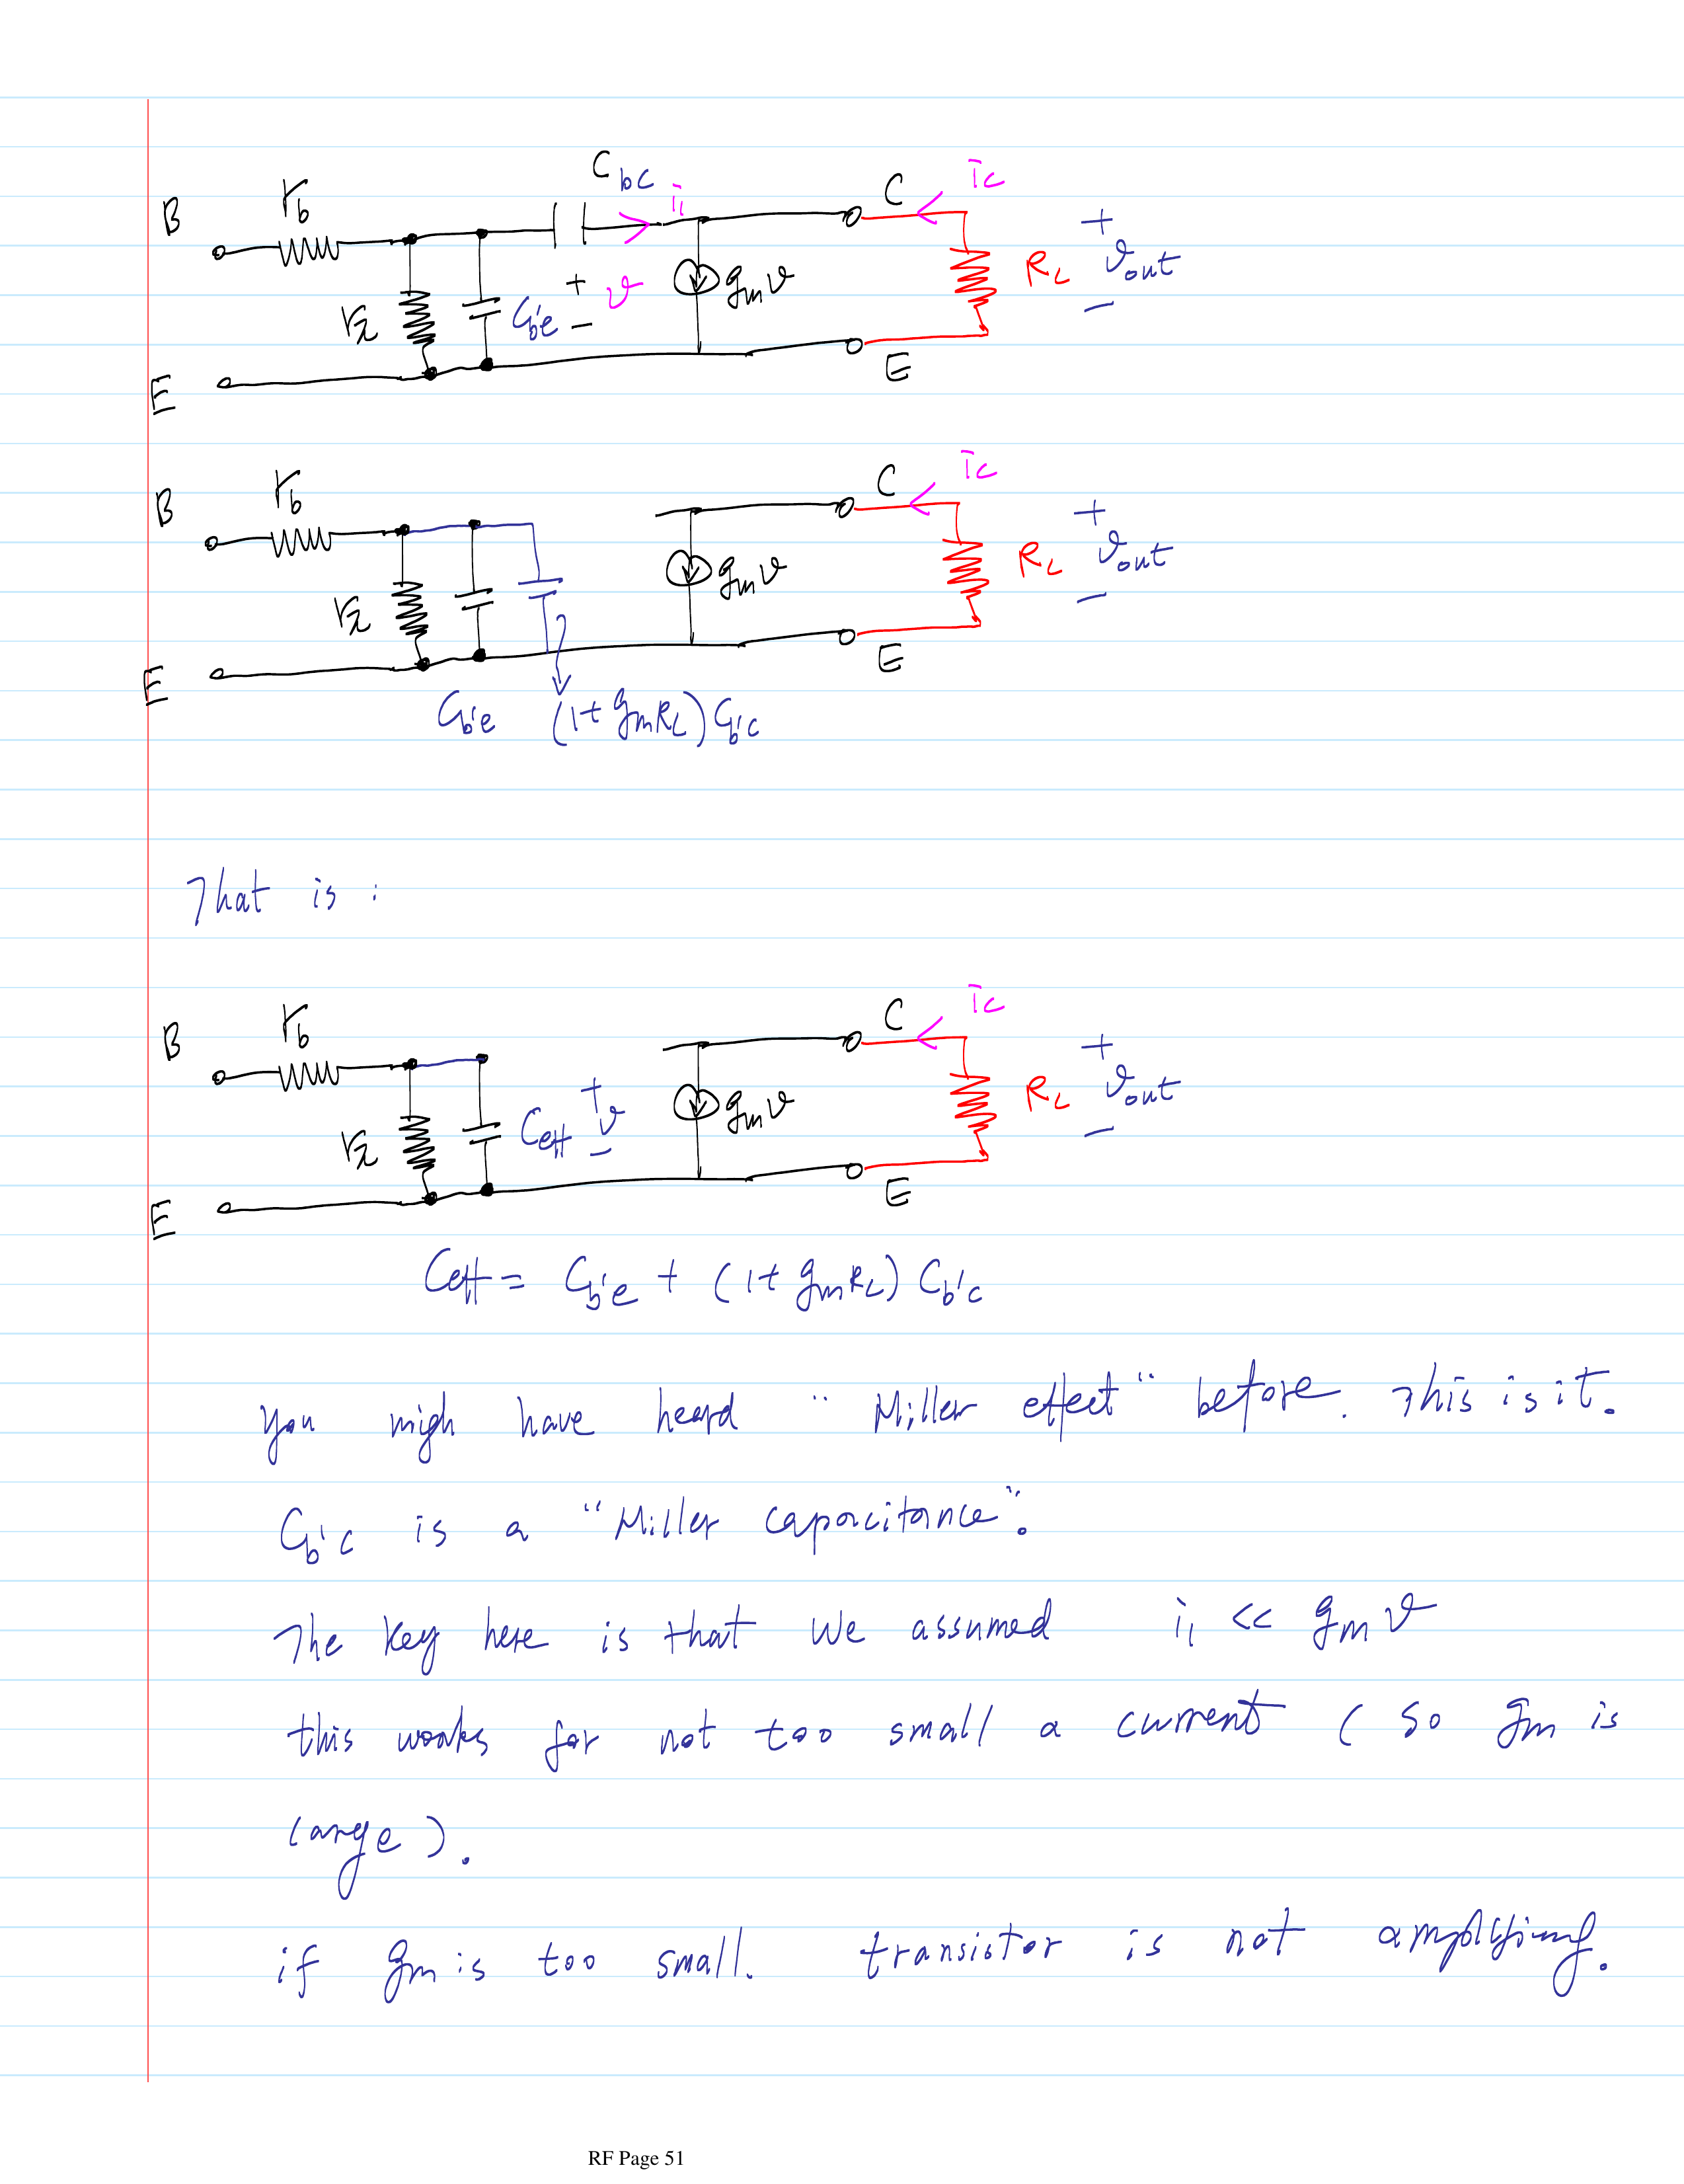 C_bc i_1 C i_c
B r_b + v_out −
r_π C_b'e + v − g_m v R_L
E E
C i_c
B r_b + v_out −
r_π g_m v R_L
E E
C_b'e (1+ g_m R_L) C_b'c
That is :
C i_c
B r_b + v_out −
r_π C_eff + v − g_m v R_L
E E
C_eff = C_b'e + (1+ g_m R_L) C_b'c
You migh have heard "Miller effect" before. This is it.
C_b'c is a "Miller capacitance".
The key here is that we assumed i_1 << g_m v
this works for not too small a current ( so g_m is
large ).
if g_m is too small. transistor is not amplifying.
RF Page 51